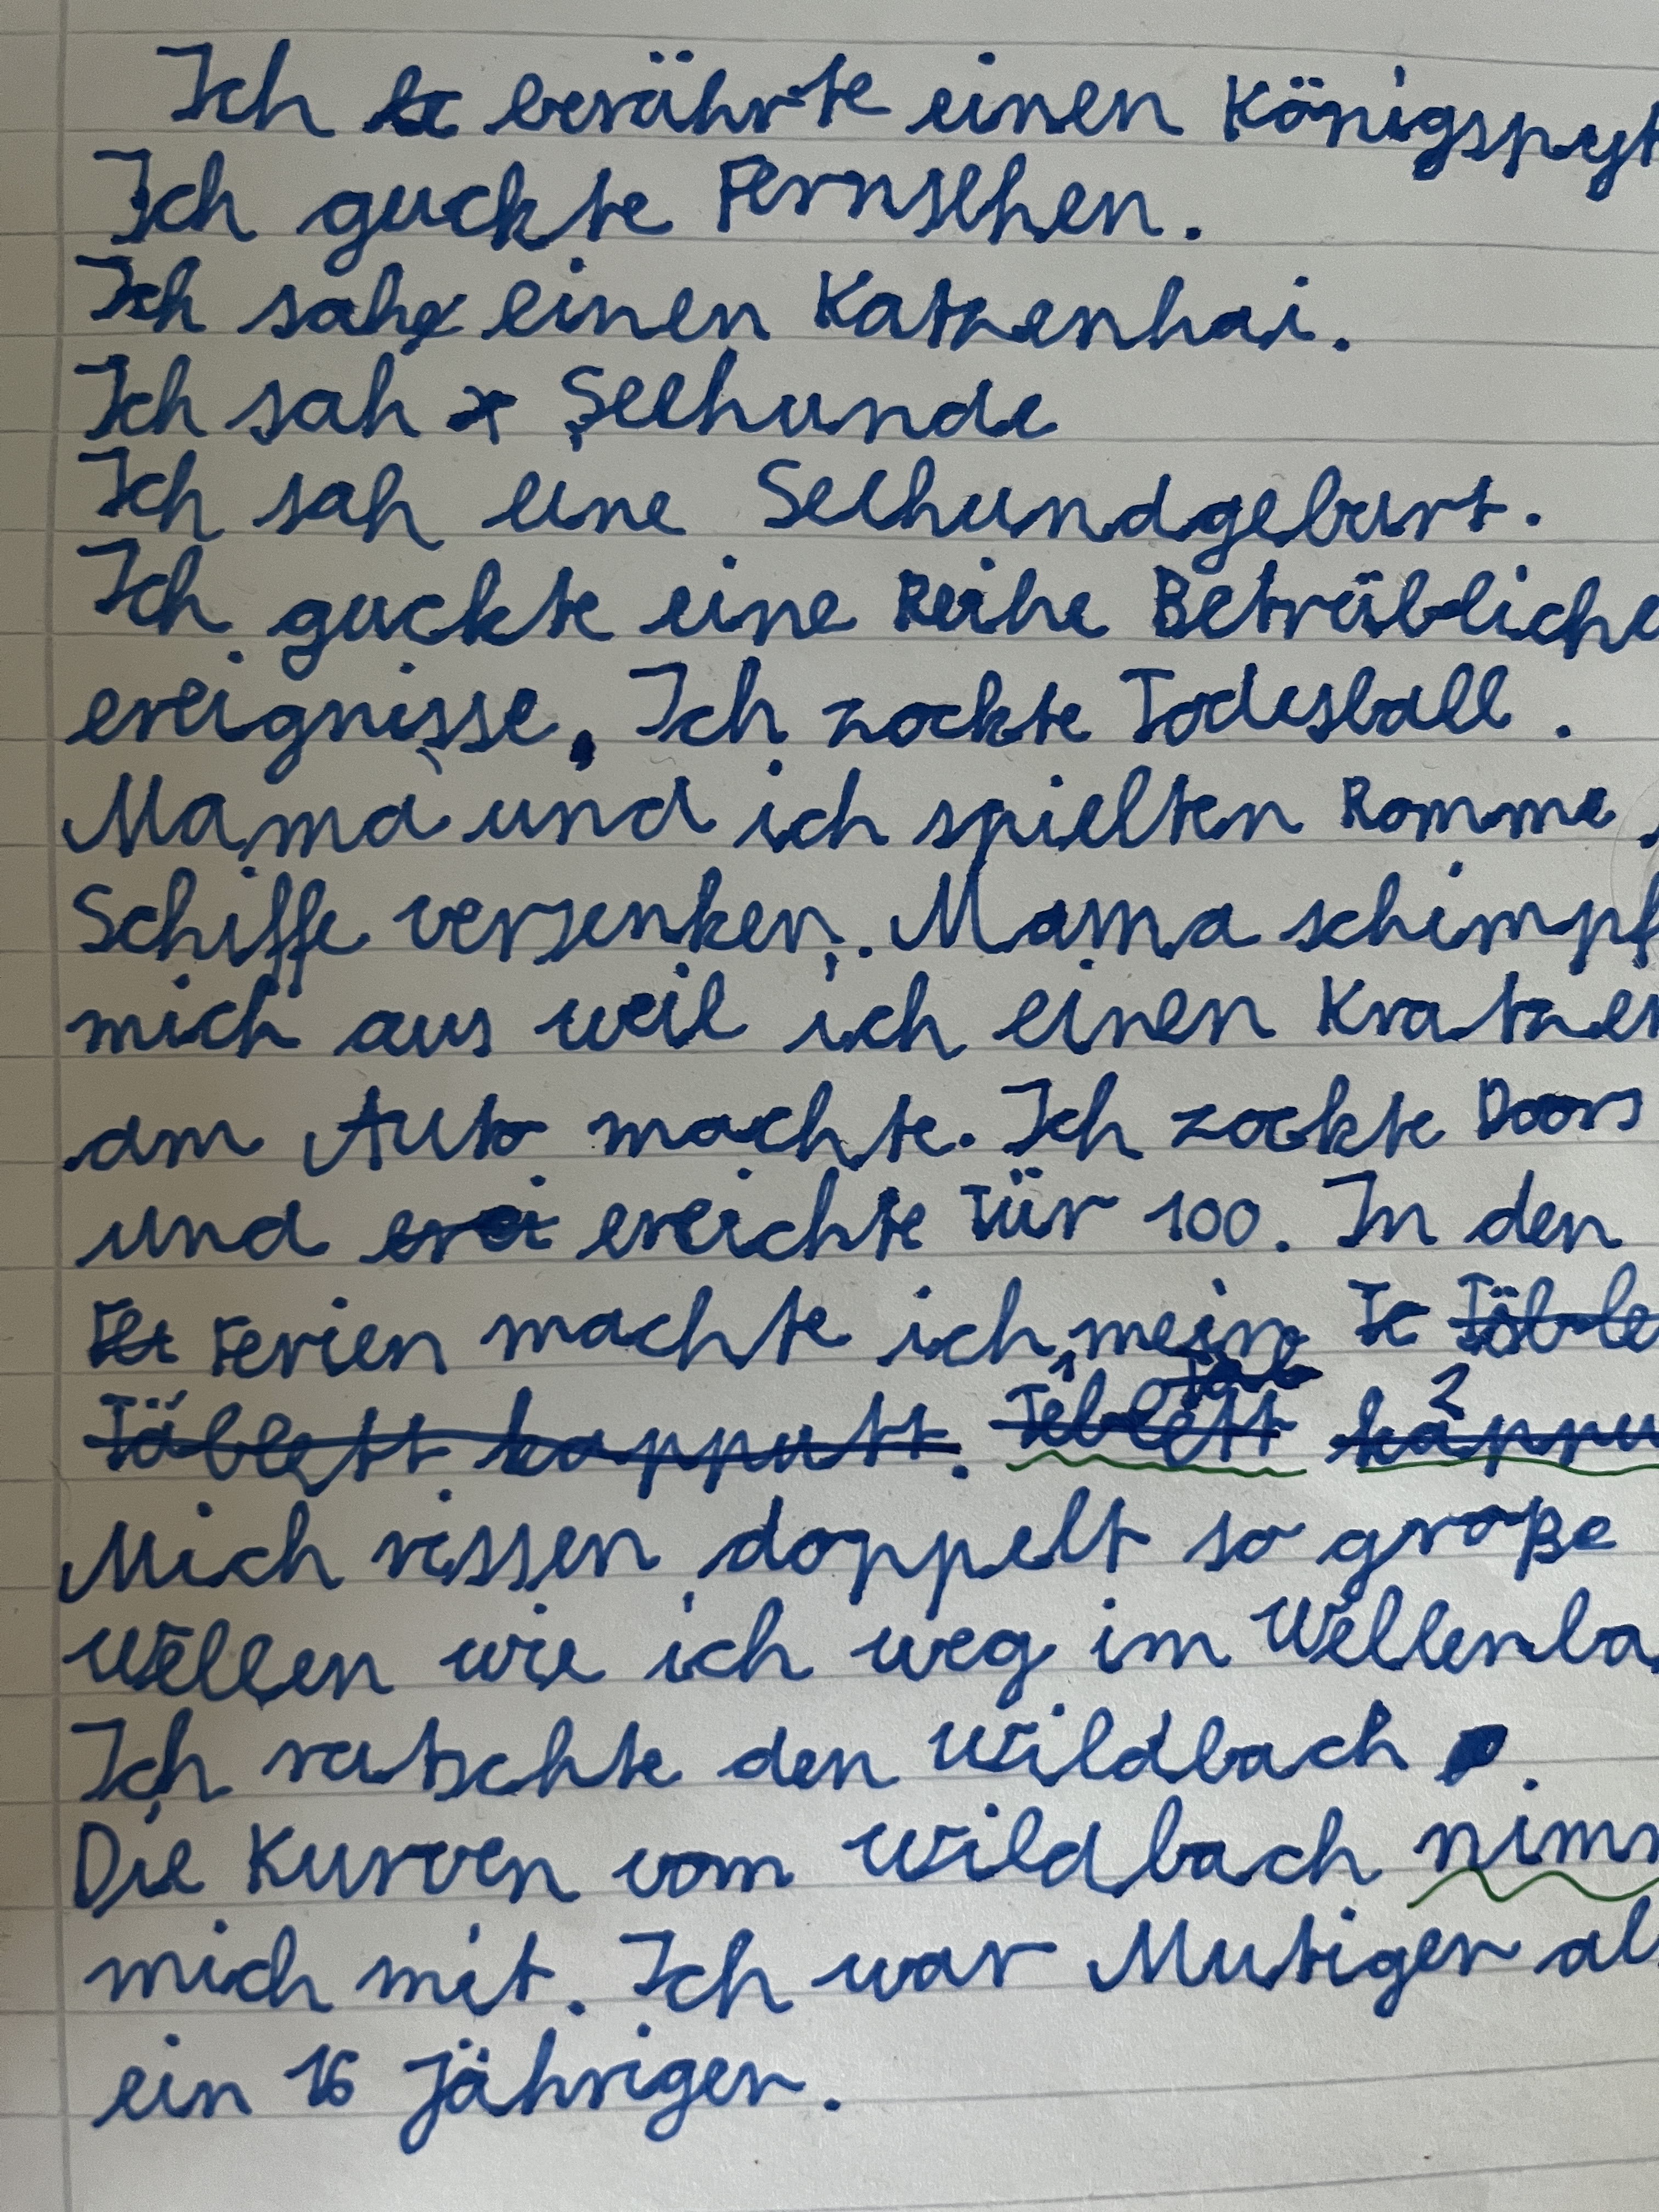 Ich berührte einen Königspyt
Ich guckte Fernsehen.
Ich sah einen Katzenhai.
Ich sah Seehunde
Ich sah eine Seehundgeburt.
Ich guckte eine Reihe Beträbliche
ereignisse. Ich zockte Todesball.
Mama und ich spielten Romme.
Schiffe versenken. Mama schimpf
mich aus weil ich einen Kratzer
am Auto machte. Ich zockte Doors
und ereichte Tür 100. In den
Ferien machte ich mein Täble
Täblett kapputt. Teblett kappu
Mich rissen doppelt so große
Wellen wie ich weg im Wellenba
Ich rutschte den Wildbach.
Die Kurven vom Wildbach nim
mich mit. Ich war Mutiger al
ein 16 Jähriger.